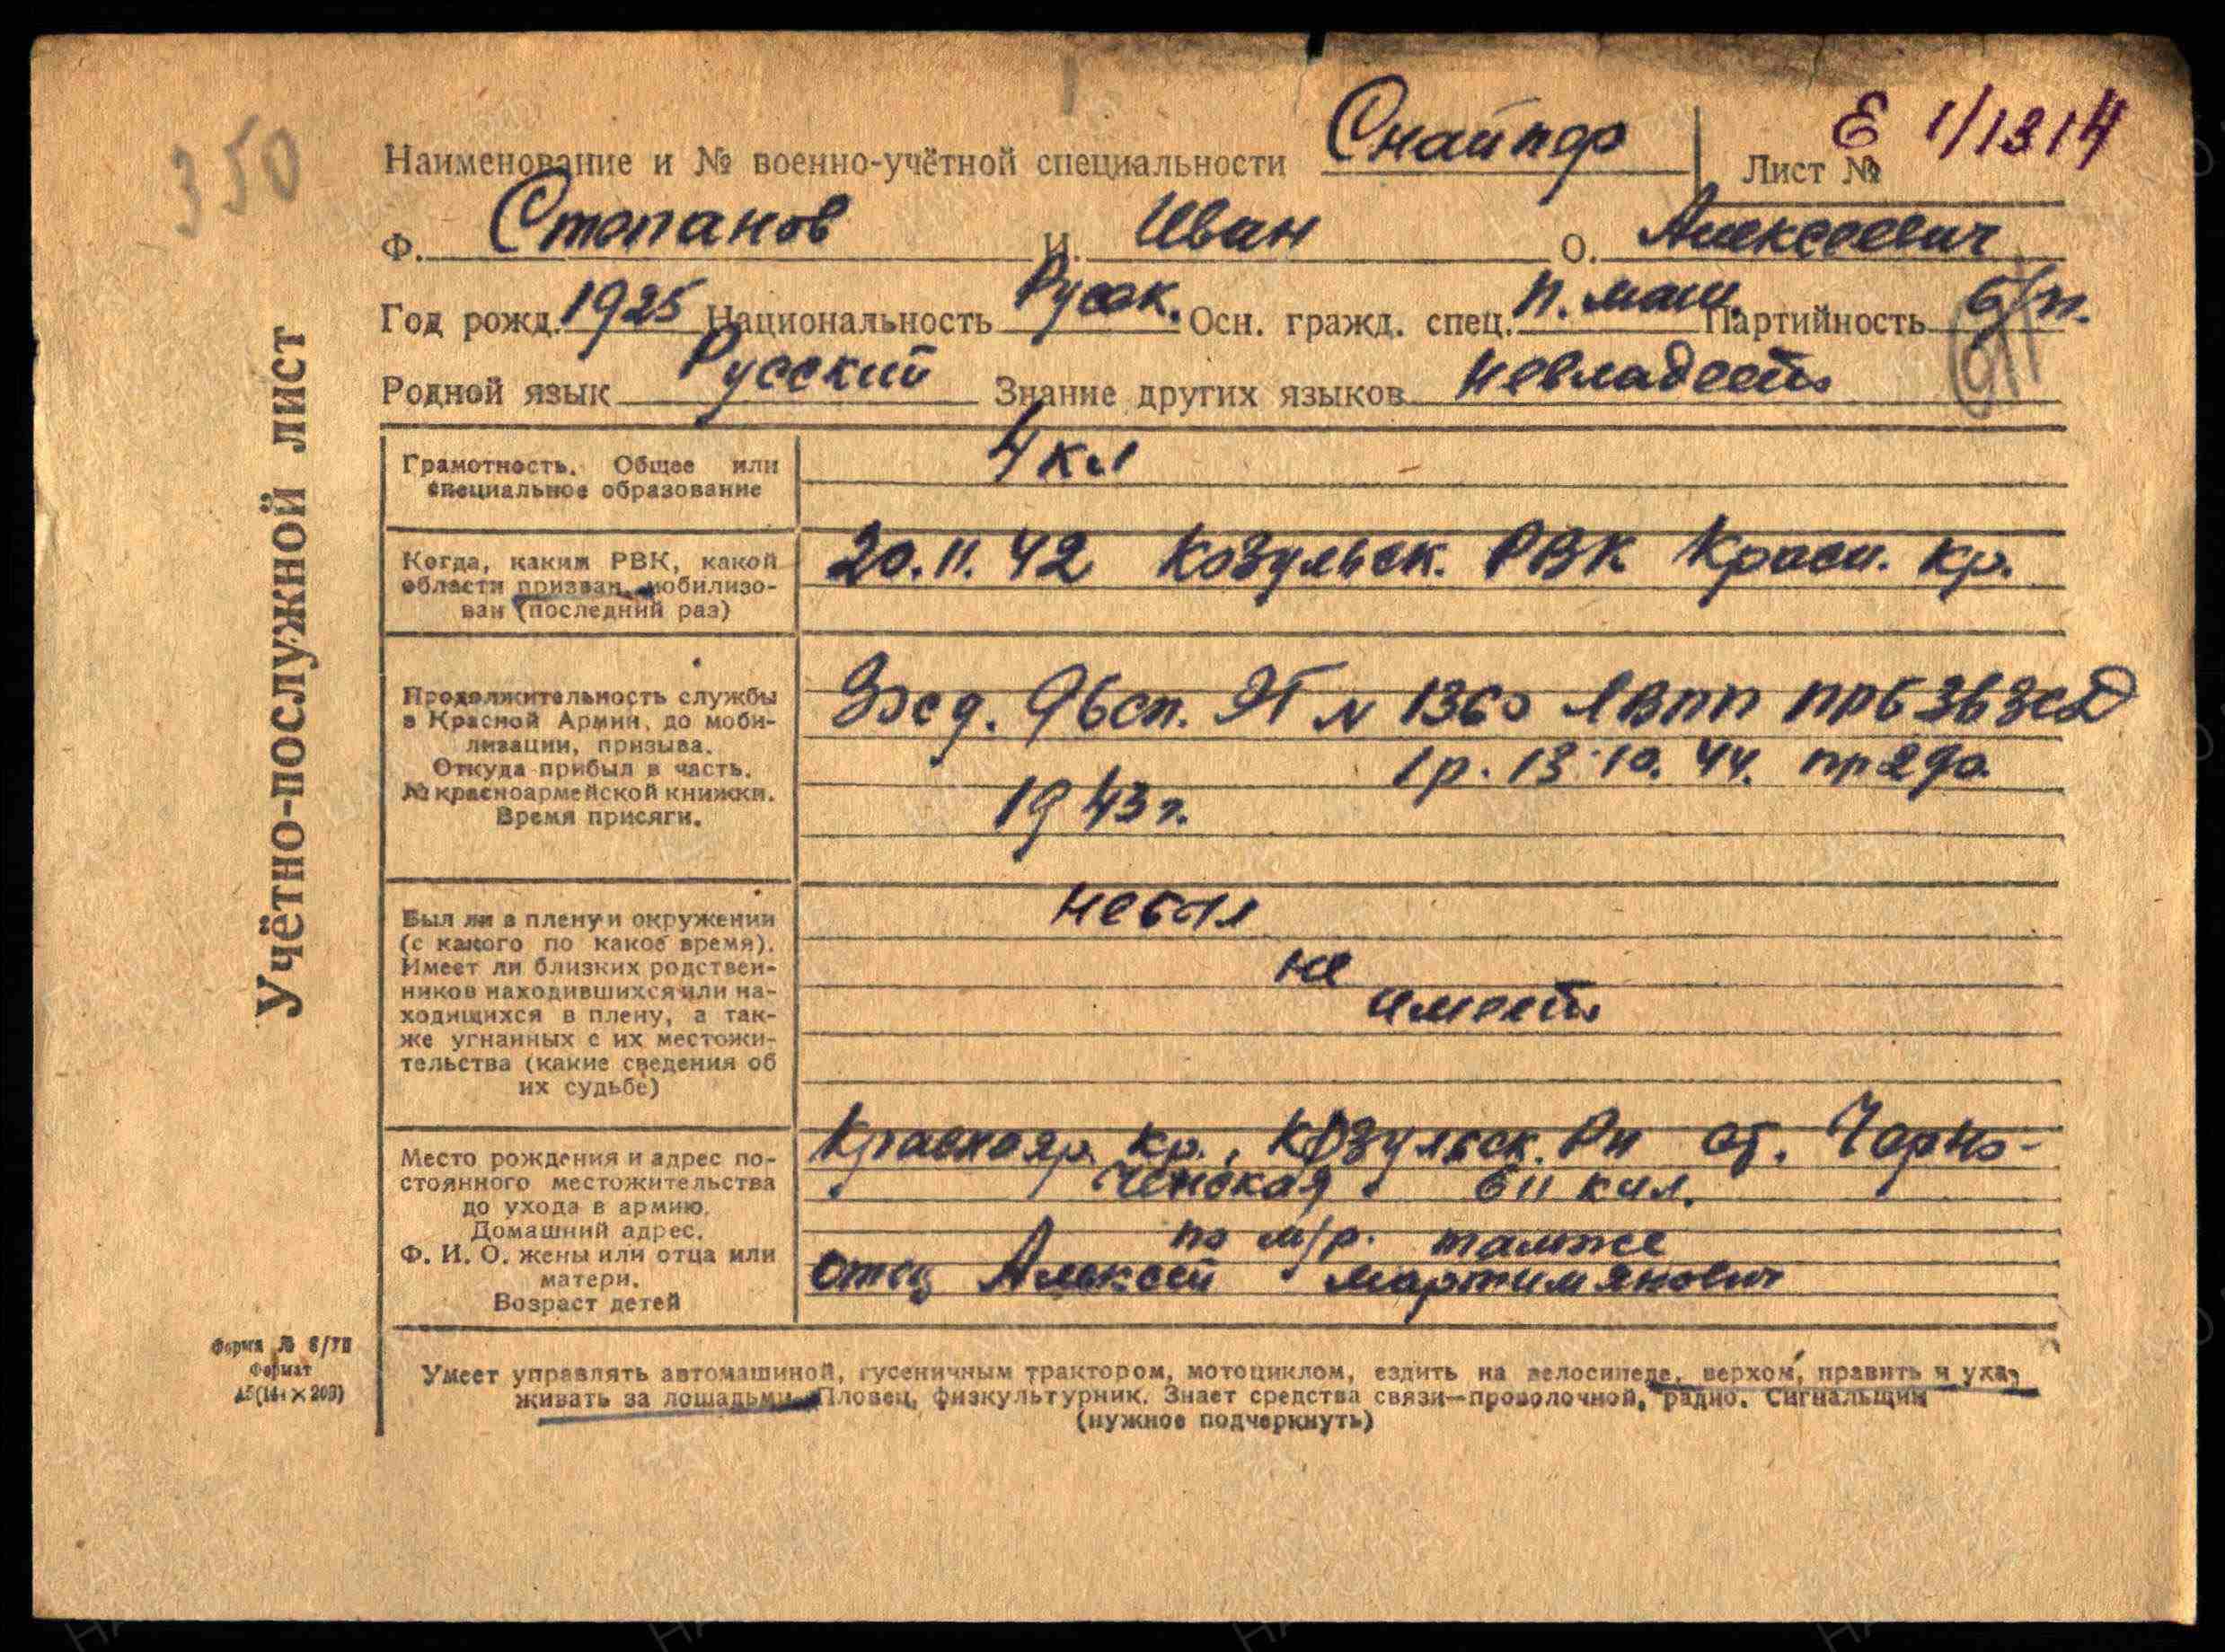 350
Е 1/1314
Наименование и № военно-учётной специальности Снайпер Лист №
Ф. Степанов И. Иван О. Алексеевич
Год рожд. 1925 Национальность Русск. Осн. гражд. спец. п. маш. Партийность б/п.
Родной язык Русский Знание других языков невладеетъ
Учётно-послужной лист
Грамотность. Общее или
специальное образование
4 кл
Когда, каким РВК, какой
области призван, мобилизо-
ван (последний раз)
20.11.42 Козульск. РВК Красн. кр.
Продолжительность службы
в Красной Армии, до моби-
лизации, призыва.
Откуда прибыл в часть.
№ красноармейской книжки.
Время присяги.
96сп. ЭГ N 1360
1р. 13.10.44.
1943г.
Был ли в плену и окружении
(с какого по какое время).
Имеет ли близких родствен-
ников находившихся или на-
ходящихся в плену, а так-
же угнанных с их местожи-
тельства (какие сведения об
их судьбе)
небыл
не
имеетъ
Место рождения и адрес по-
стоянного местожительства
до ухода в армию.
Домашний адрес.
Ф. И. О. жены или отца или
матери.
Возраст детей
Краснояр. кр., Козульск. Рн ст. Черно-
реченская 611 кил.
по м/р. тамже
отец Алексей Мартимянович
Форма № 6/УП
Формат
А5 (144 × 203)
Умеет управлять автомашиной, гусеничным трактором, мотоциклом, ездить на велосипеде, верхом, править и уха-
живать за лошадьми. Пловец, физкультурник. Знает средства связи—проволочной, радио. Сигнальщик
(нужное подчеркнуть)